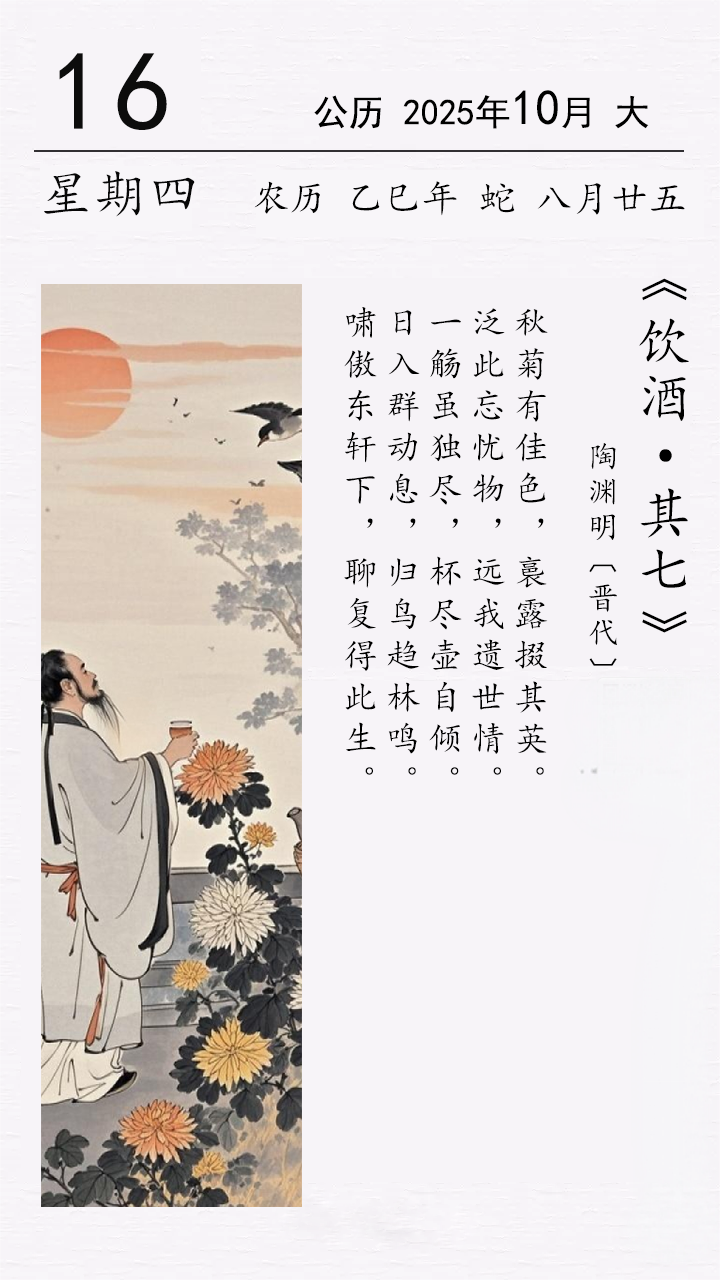 16
公历 2025年10月 大
星期四
农历 乙巳年 蛇 八月廿五
《饮酒·其七》
陶渊明〔晋代〕
秋菊有佳色，裛露掇其英。
泛此忘忧物，远我遗世情。
一觞虽独尽，杯尽壶自倾。
日入群动息，归鸟趋林鸣。
啸傲东轩下，聊复得此生。